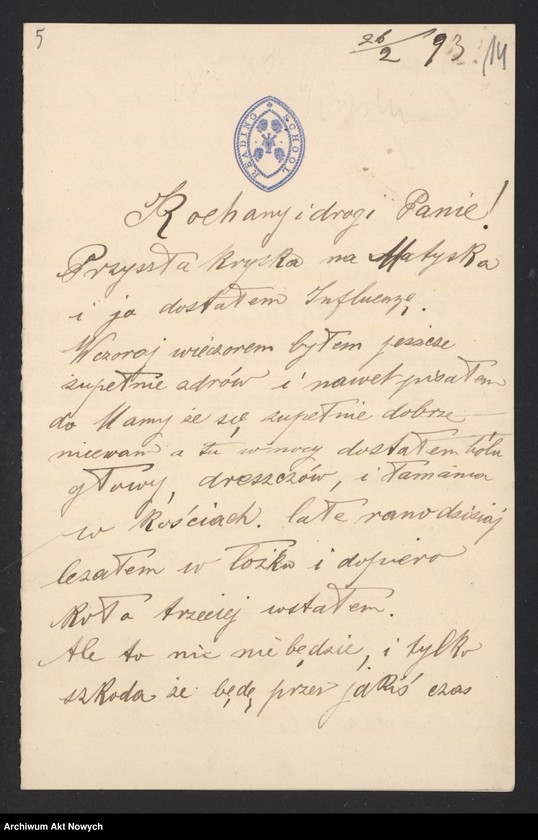 5
26/2 93. 14
READING SCHOOL
Kochany i drogi Panie!
Przyszła kryska na Matyska
i ja dostałem Influenzę.
Wczoraj wieczorem byłem jeszcze
zupełnie zdrów i nawet pisałem
do Mamy że się zupełnie dobrze
miewam a tu w nocy dostałem bólu
głowy, dreszczów, i łamania
w kościach. Całe rano dzisiaj
leżałem w łóżku i dopiero
koło trzeciej wstałem.
Ale to nic nie będzie, i tylko
szkoda że będę przez jakiś czas
Archiwum Akt Nowych